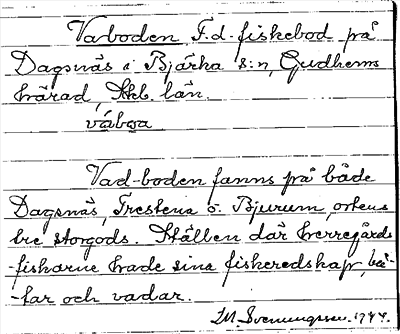 Vaboden F.d. fiskebod på
Dagsnäs i Bjärka s:n, Gudhems
härad, Skb. län.
våboa
Vad-boden fanns på både
Dagsnäs, Trestena o. Bjurum, ortens
tre storgods. Ställen där herregårds
-fiskarne hade sina fiskeredskap, bå-
-tar och vadar.
M. Svenungsson. 1944.